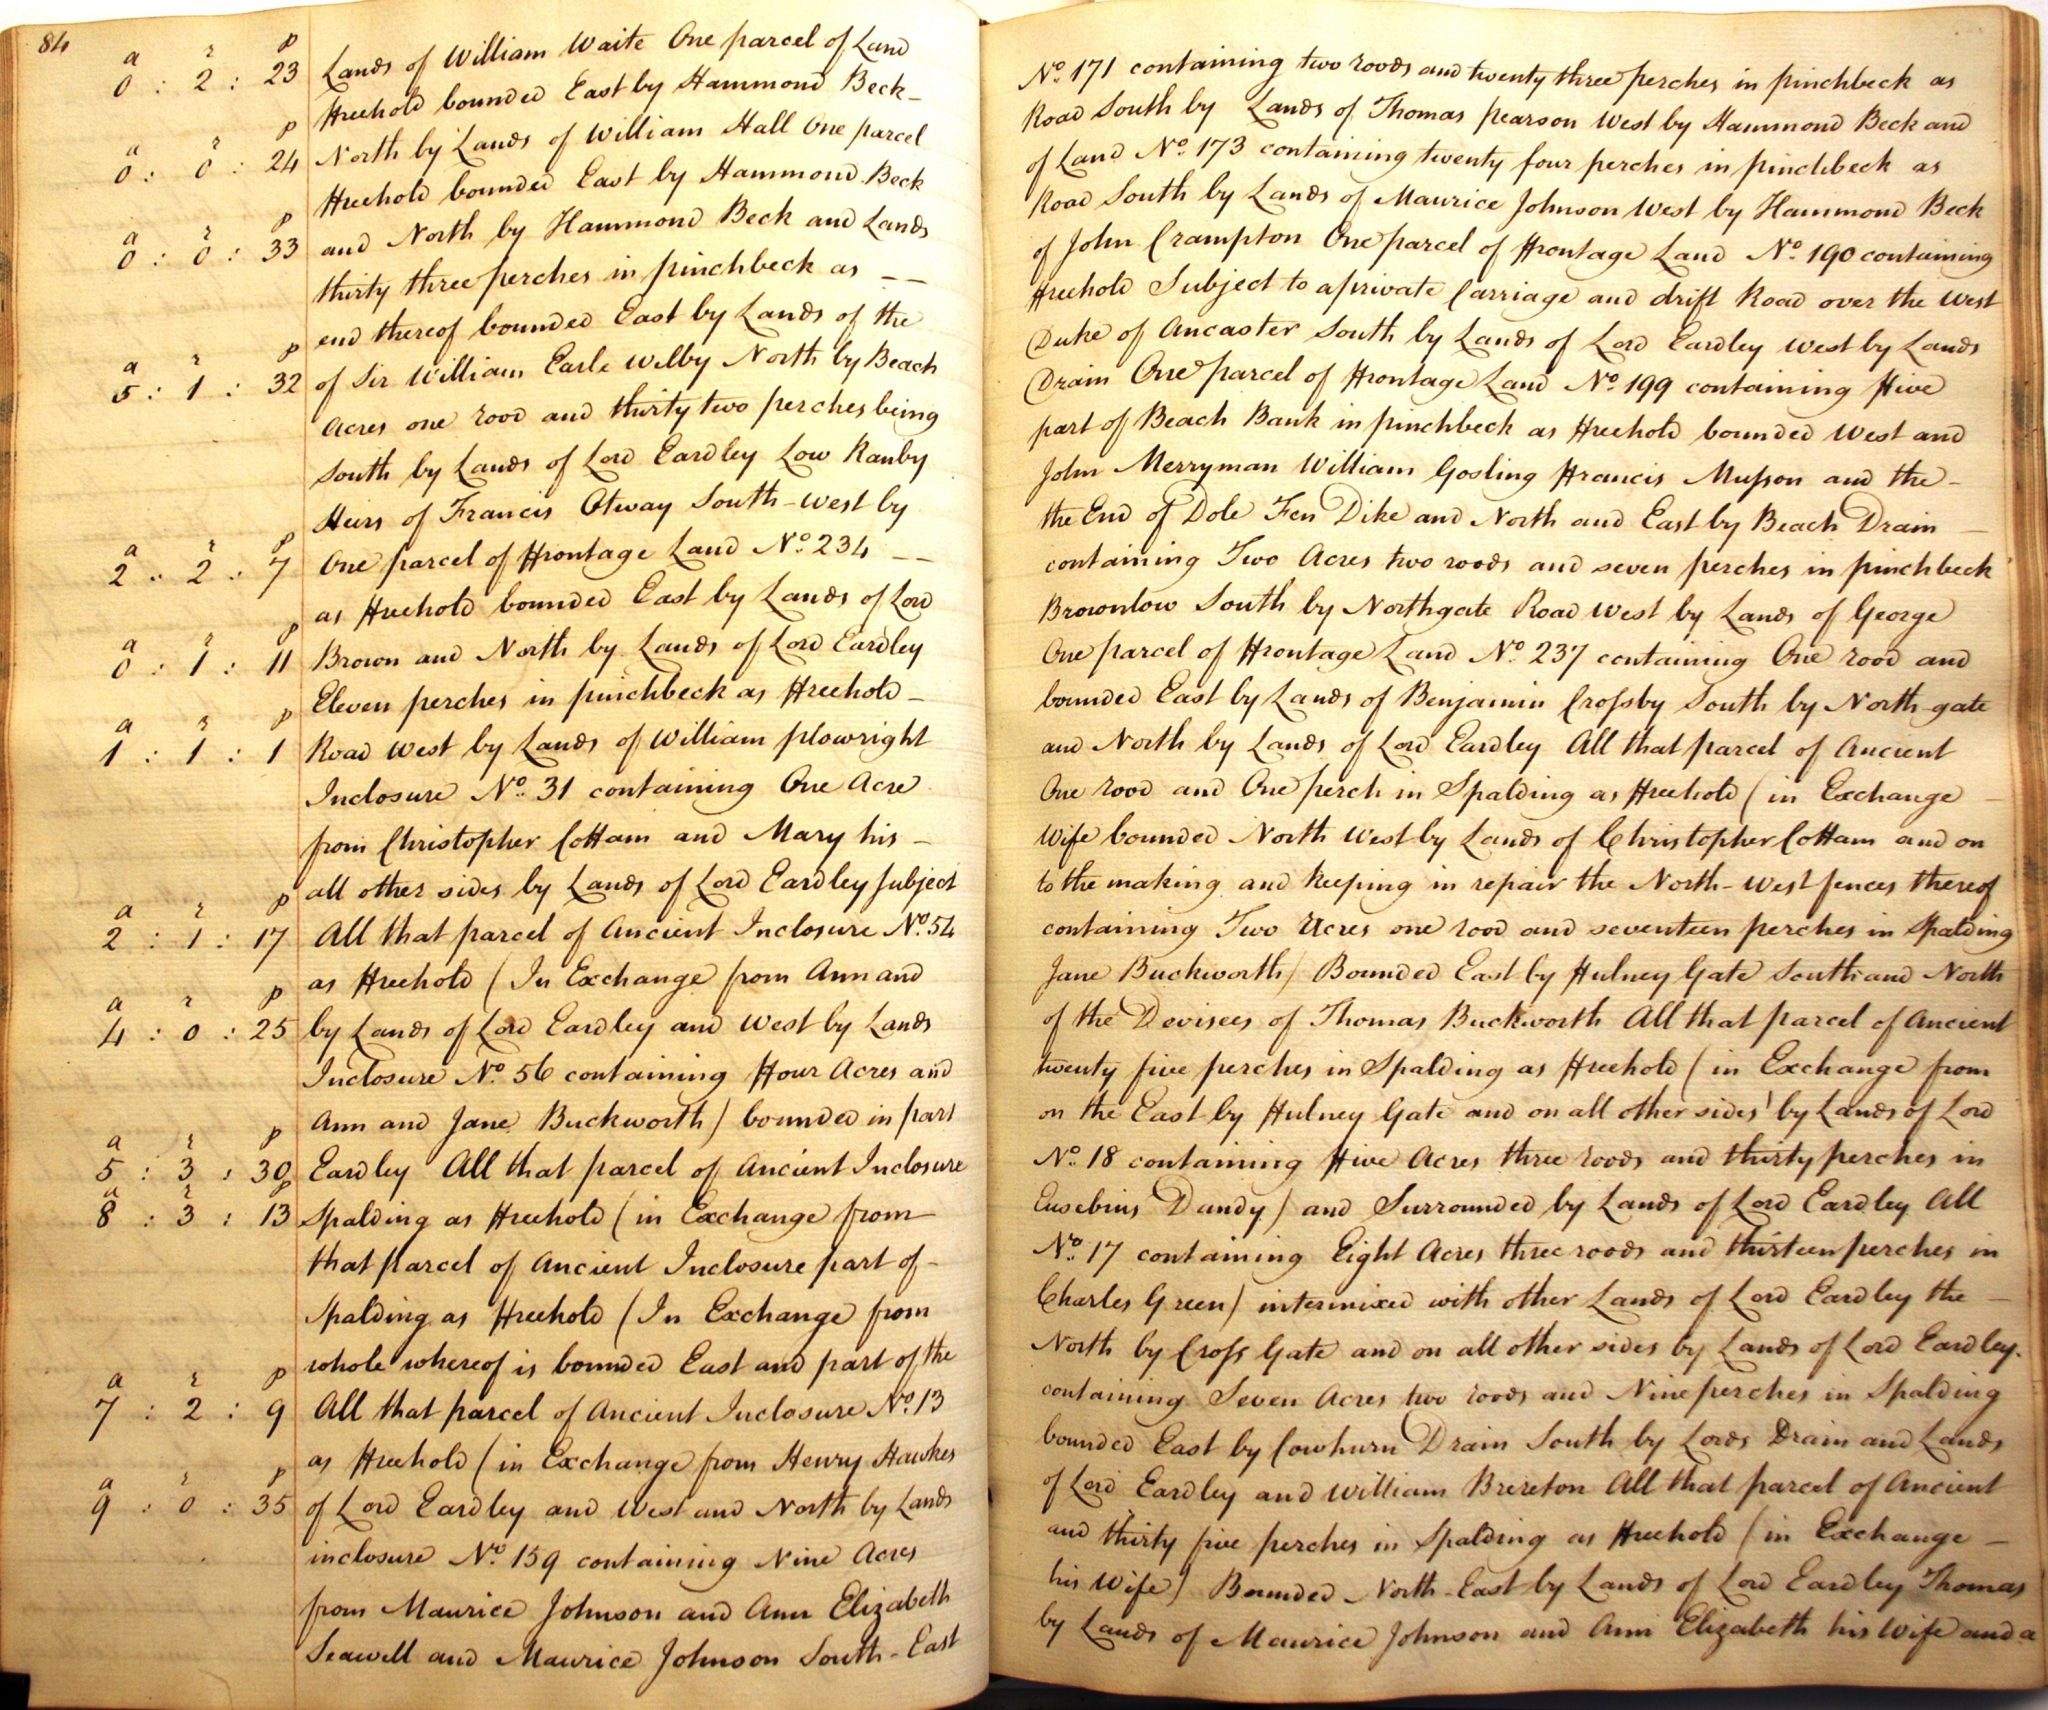 84
a r p
0 : 2 : 23 Lands of William Waite One parcel of Land No. 171 containing two roods and twenty three perches in pinchbeck as
Freehold bounded East by Hammond Beck - Road South by Lands of Thomas pearson West by Hammond Beck and
a r p
0 : 0 : 24 North by Lands of William Hall One parcel of Land No. 173 containing twenty four perches in pinchbeck as
Freehold bounded East by Hammond Beck Road South by Lands of Maurice Johnson West by Hammond Beck
a r p
0 : 0 : 33 and North by Hammond Beck and Lands of John Crampton One parcel of Frontage Land No. 190 containing
thirty three perches in pinchbeck as - - Freehold Subject to a private Carriage and drift Road over the West
end thereof bounded East by Lands of the Duke of Ancaster South by Lands of Lord Eardley West by Lands
a r p
5 : 1 : 32 of Sir William Earle Welby North by Beach Drain One parcel of Frontage Land No. 199 containing Five
Acres one rood and thirty two perches being part of Beach Bank in pinchbeck as Freehold bounded West and
South by Lands of Lord Eardley Low Ranby John Merryman William Gosling Francis Musson and the -
Heirs of Francis Otway South-west by the End of Dole Fen Dike and North and East by Beach Drain -
a r p
2 : 2 : 7 One parcel of Frontage Land No. 234 - - containing Two Acres two roods and seven perches in pinchbeck
as Freehold bounded East by Lands of Lord Brownlow South by Northgate Road West by Lands of George
a r p
0 : 1 : 11 Brown and North by Lands of Lord Eardley One parcel of Frontage Land No. 237 containing One rood and
Eleven perches in pinchbeck as Freehold - bounded East by Lands of Benjamin Crossby South by North-gate
a r p
1 : 1 : 1 Road West by Lands of William plowright and North by Lands of Lord Eardley All that parcel of Ancient
Inclosure No. 31 containing One Acre One rood and One perch in Spalding as Freehold (in Exchange -
from Christopher Cottam and Mary his - Wife bounded North West by Lands of Christopher Cottam and on
all other sides by Lands of Lord Eardley Subject to the making and keeping in repair the North-West fences thereof
a r p
2 : 1 : 17 All that parcel of Ancient Inclosure No. 54 containing Two Acres one rood and seventeen perches in Spalding
as Freehold (In Exchange from Ann and Jane Buckworth) Bounded East by Hulney Gate South and North
a r p
4 : 0 : 25 by Lands of Lord Eardley and West by Lands of the Devisees of Thomas Buckworth All that parcel of Ancient
Inclosure No. 56 containing Four Acres and twenty five perches in Spalding as Freehold (in Exchange from
Ann and Jane Buckworth) bounded in part on the East by Hulney Gate and on all other sides by Lands of Lord
a r p
5 : 3 : 30 Eardley All that parcel of Ancient Inclosure No. 18 containing Five Acres three roods and thirty perches in
a r p
8 : 3 : 13 Spalding as Freehold (in Exchange from - Eusebius Dandy) and Surrounded by Lands of Lord Eardley All
that parcel of Ancient Inclosure part of - No. 17 containing Eight Acres three roods and thirteen perches in
Spalding as Freehold (In Exchange from Charles Green) intermixed with other Lands of Lord Eardley the -
whole whereof is bounded East and part of the North by Cross Gate and on all other sides by Lands of Lord Eardley.
a r p
7 : 2 : 9 All that parcel of Ancient Inclosure No. 13 containing Seven Acres two roods and Nine perches in Spalding
as Freehold (in Exchange from Henry Hawkes bounded East by Cowhurn Drain South by Lords Drain and Lands
a r p
9 : 0 : 35 of Lord Eardley and West and North by Lands of Lord Eardley and William Brereton All that parcel of Ancient
inclosure No. 159 containing Nine Acres and thirty five perches in Spalding as Freehold (in Exchange -
from Maurice Johnson and Ann Elizabeth his Wife) Bounded North-East by Lands of Lord Eardley Thomas
Seawell and Maurice Johnson South-East by Lands of Maurice Johnson and Ann Elizabeth his Wife and a